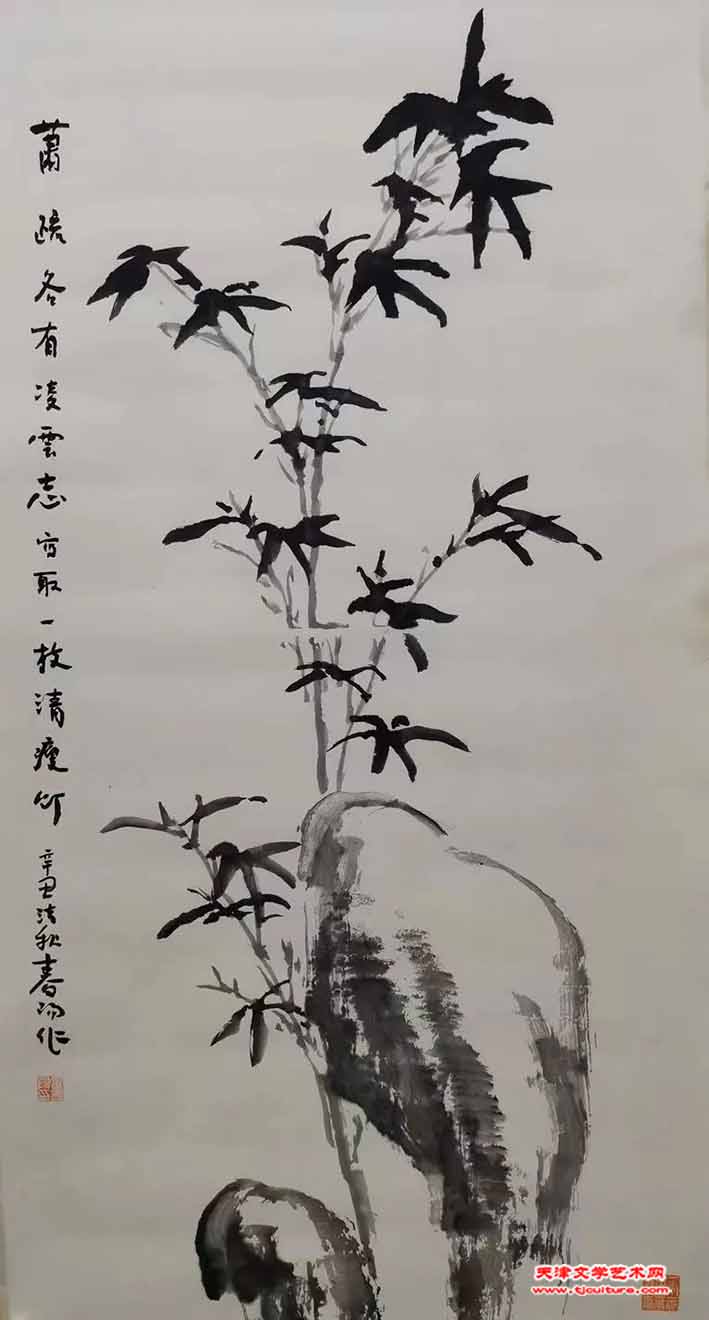 蕭疏各有凌雲志寫取一枝清瘦竹 辛丑清秋春陽作
天津文学艺术网
www.tjculture.com